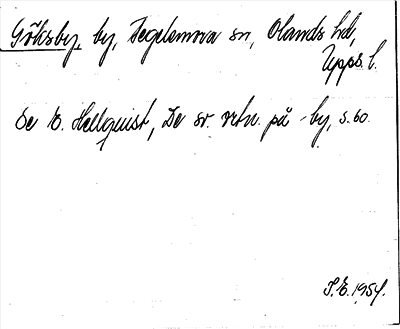 Göksby, by, Tegelsmora sn, Olands hd,
Upps. l.
Se E. Hellquist, De sv. ortn. på -by, s. 60.
S.E. 1954.